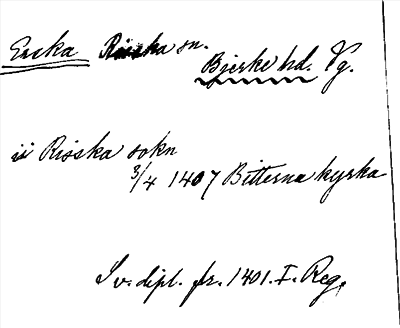 Eneka Risska sn.
Bjerke hd. Vg.
i Risska sokn
3/4 1407 Bitterna kyrka
Sv. dipl. fr. 1401. I. Reg.